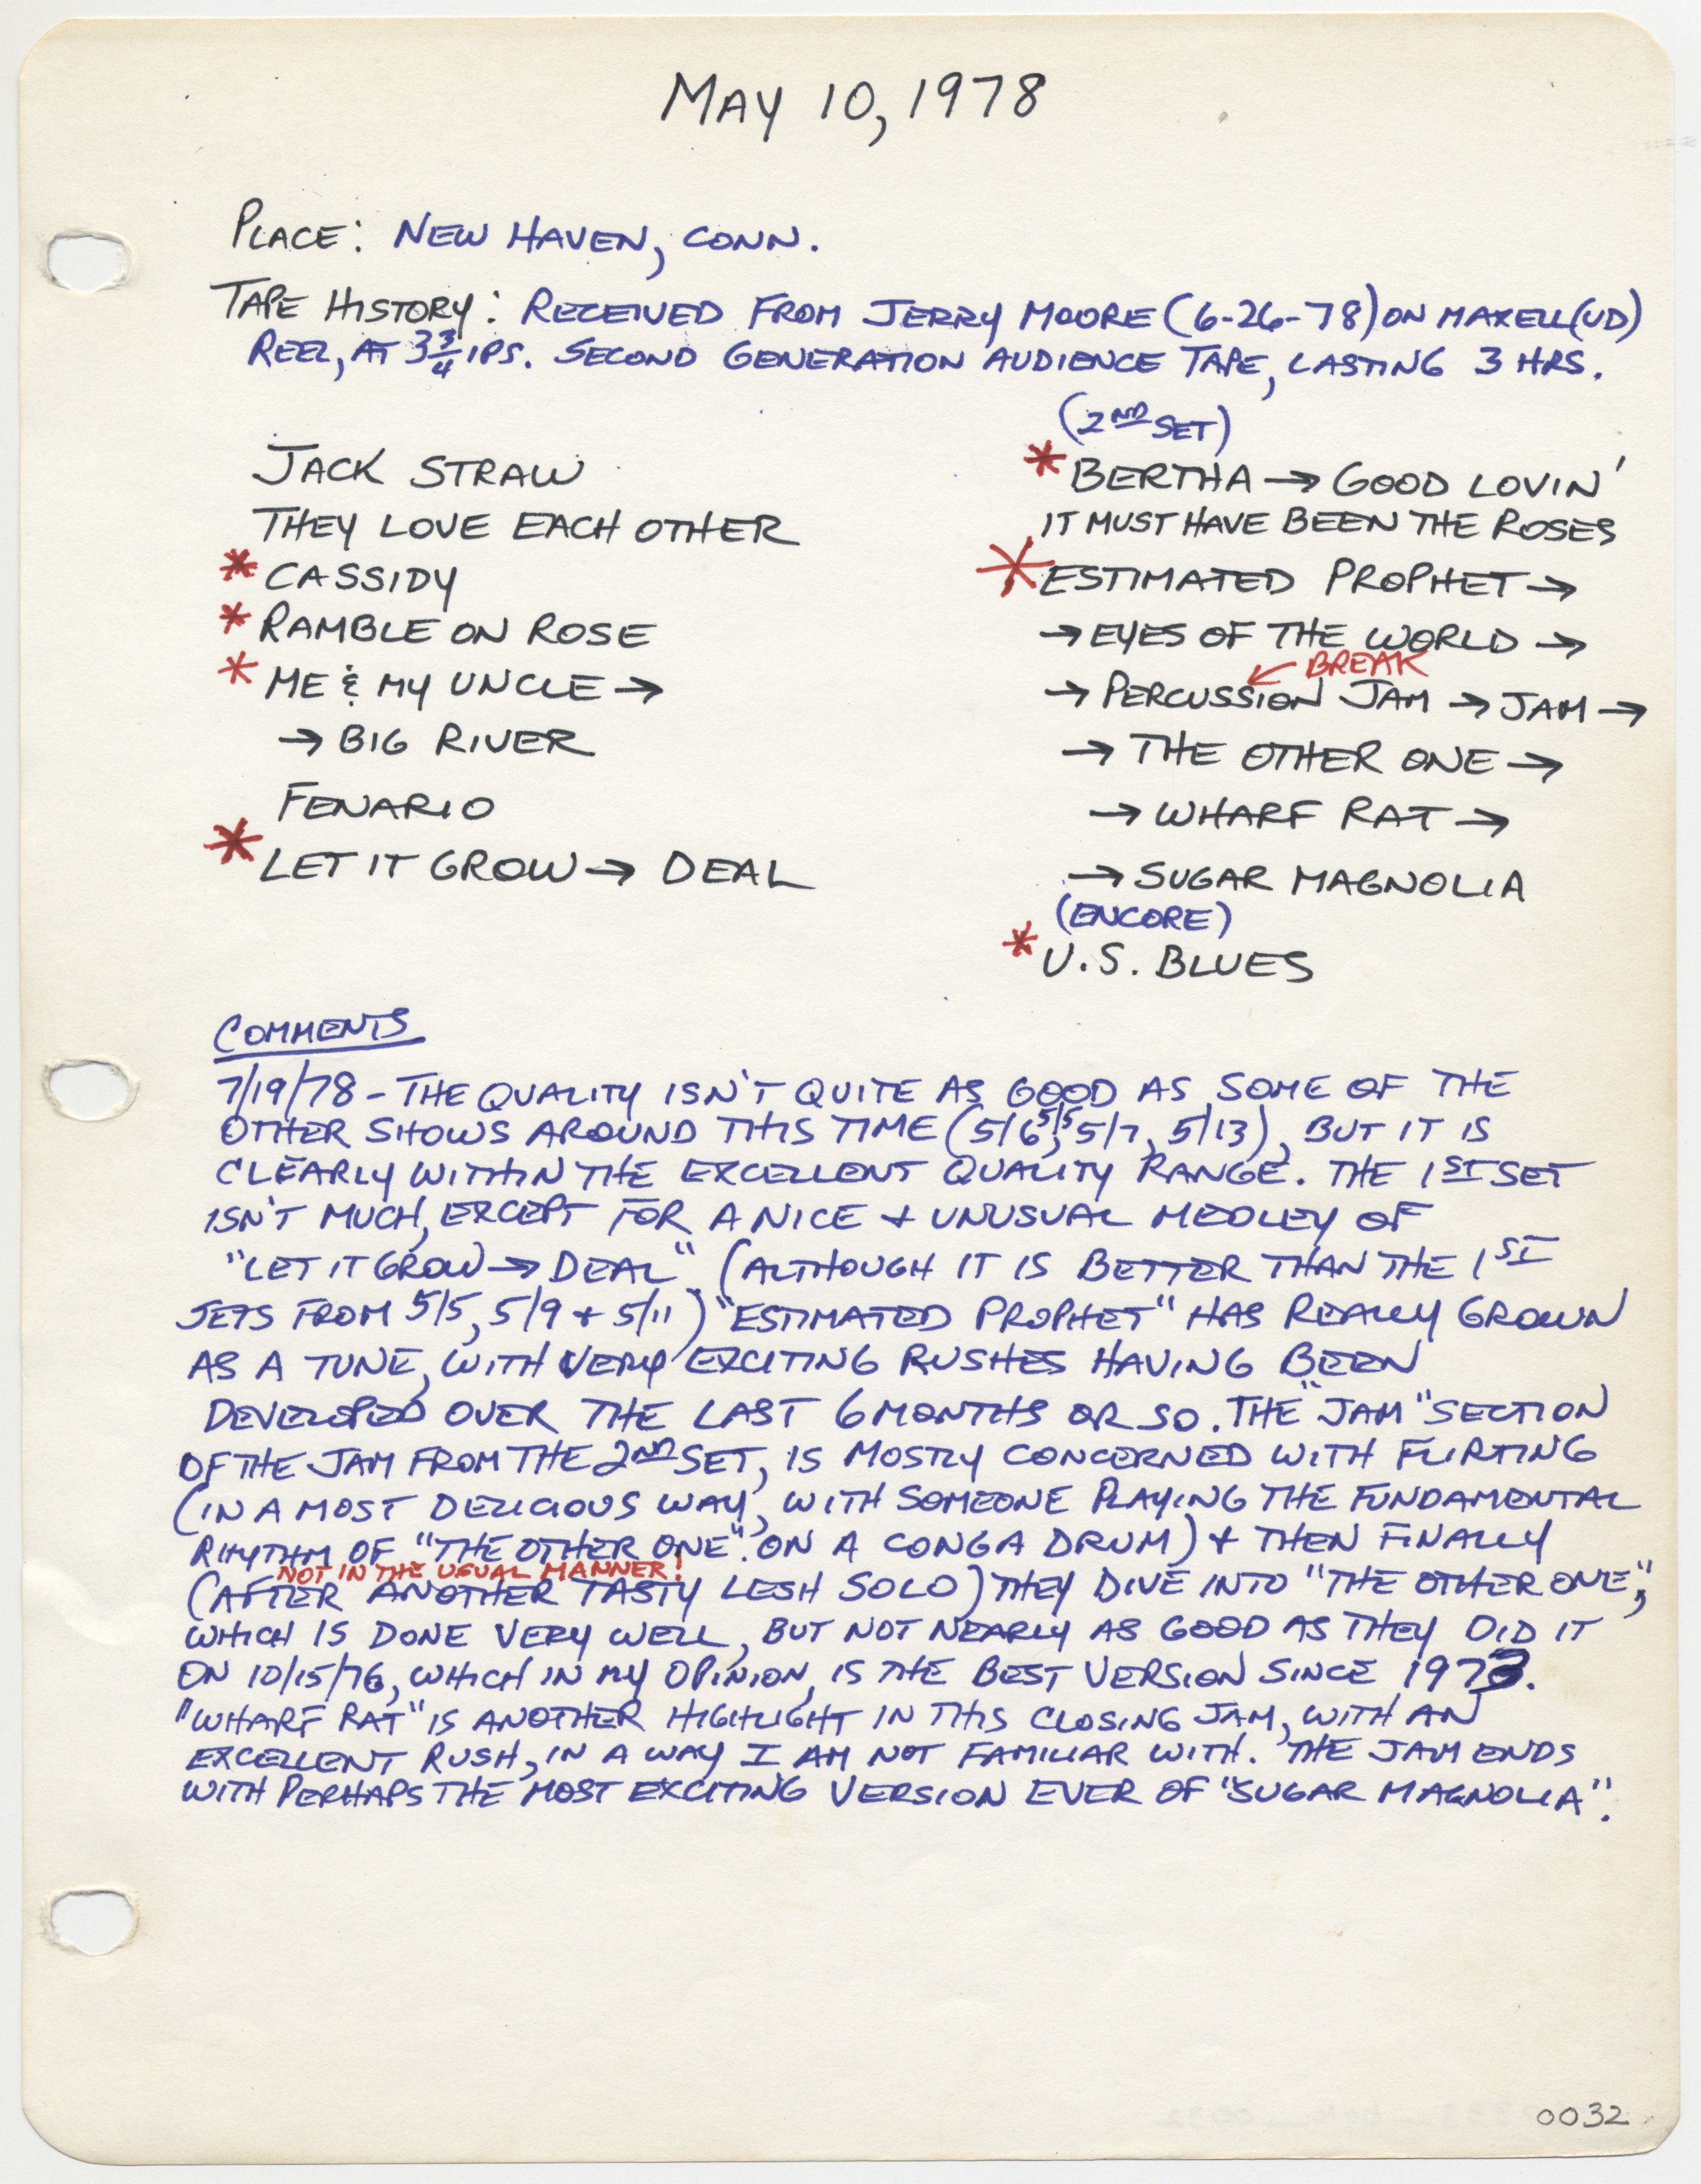 MAY 10, 1978
PLACE: NEW HAVEN, CONN.
TAPE HISTORY: RECEIVED FROM JERRY MOORE (6-26-78) ON MAXELL (UD)
REEL, AT 3 3/4 IPS. SECOND GENERATION AUDIENCE TAPE, LASTING 3 HRS.
JACK STRAW
THEY LOVE EACH OTHER
* CASSIDY
* RAMBLE ON ROSE
* ME & MY UNCLE →
→ BIG RIVER
FENARIO
* LET IT GROW → DEAL
(2ND SET)
* BERTHA → GOOD LOVIN'
IT MUST HAVE BEEN THE ROSES
* ESTIMATED PROPHET →
→ EYES OF THE WORLD →
← BREAK
→ PERCUSSION JAM → JAM →
→ THE OTHER ONE →
→ WHARF RAT →
→ SUGAR MAGNOLIA
(ENCORE)
* U.S. BLUES
COMMENTS
7/19/78 - THE QUALITY ISN'T QUITE AS GOOD AS SOME OF THE
OTHER SHOWS AROUND THIS TIME (5/6, 5/5, 5/7, 5/13), BUT IT IS
CLEARLY WITHIN THE EXCELLENT QUALITY RANGE. THE 1ST SET
ISN'T MUCH, EXCEPT FOR A NICE + UNUSUAL MEDLEY OF
"LET IT GROW → DEAL" (ALTHOUGH IT IS BETTER THAN THE 1ST
SETS FROM 5/5, 5/9 + 5/11) "ESTIMATED PROPHET" HAS REALLY GROWN
AS A TUNE, WITH VERY EXCITING RUSHES HAVING BEEN
DEVELOPED OVER THE LAST 6 MONTHS OR SO. THE "JAM" SECTION
OF THE JAM FROM THE 2ND SET, IS MOSTLY CONCERNED WITH FLIRTING
(IN A MOST DELICIOUS WAY, WITH SOMEONE PLAYING THE FUNDAMENTAL
RHYTHM OF "THE OTHER ONE". ON A CONGA DRUM) + THEN FINALLY
NOT IN THE USUAL MANNER!
(AFTER ANOTHER TASTY LESH SOLO) THEY DIVE INTO "THE OTHER ONE",
WHICH IS DONE VERY WELL, BUT NOT NEARLY AS GOOD AS THEY DID IT
ON 10/15/76, WHICH IN MY OPINION, IS THE BEST VERSION SINCE 1973.
"WHARF RAT" IS ANOTHER HIGHLIGHT IN THIS CLOSING JAM, WITH AN
EXCELLENT RUSH, IN A WAY I AM NOT FAMILIAR WITH. THE JAM ENDS
WITH PERHAPS THE MOST EXCITING VERSION EVER OF "SUGAR MAGNOLIA".
0032